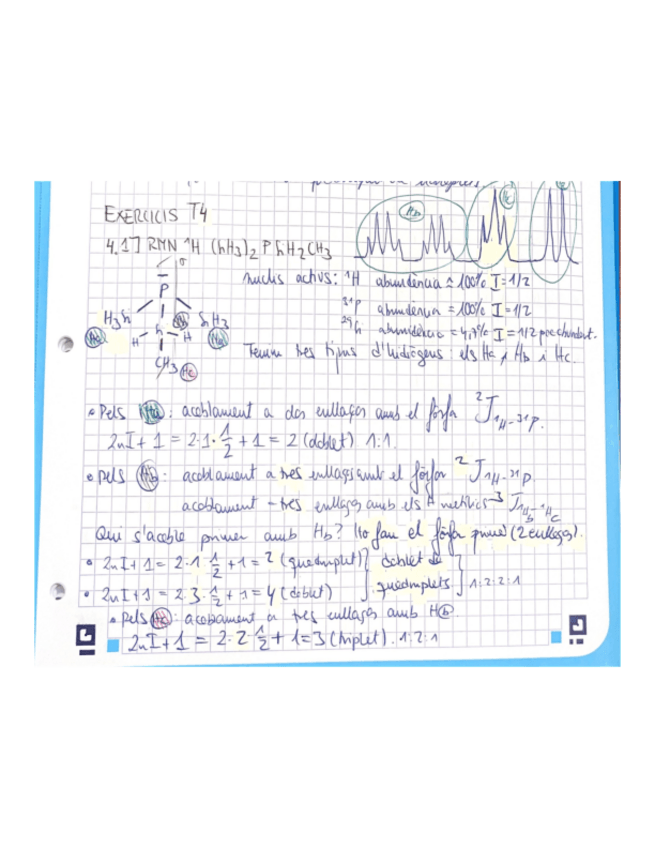 EXERCICIS T4
4.1] RMN ¹H (hH3)2 P hH2CH3
nuclis actius: ¹H abundència ≈ 100% I=1/2
³¹P abundència = 100% I=1/2
abundència = 4,7% I=1/2
P
H3
H3
Ha
H
H
Ha
CH3 Hc
Hb
Hc
Tenim tres tipus d'hidrògens: els Ha, Hb i Hc.
• Pels Ha: acoblament a dos enllaços amb el fòsfor ²J 1H-31P.
2nI+1 = 2·1·1/2+1 = 2 (doblet) 1:1.
• Pels Hb: acoblament a tres enllaços amb el fòsfor ²J 1H-31P.
acoblament - tres enllaços amb els H metílics ³J 1Hb-1Hc
Qui s'acobla primer amb Hb? Ho fan el fòsfor primer (2 enllaços).
• 2nI+1 = 2·1·1/2+1 = 2 (quadruplet) } doblet de
• 2nI+1 = 2·3·1/2+1 = 4 (doblet) } quadruplets } 1:2:2:1
• Pels Hc: acoblament a tres enllaços amb Hb.
2nI+1 = 2·2·1/2+1 = 3 (triplet). 1:2:1